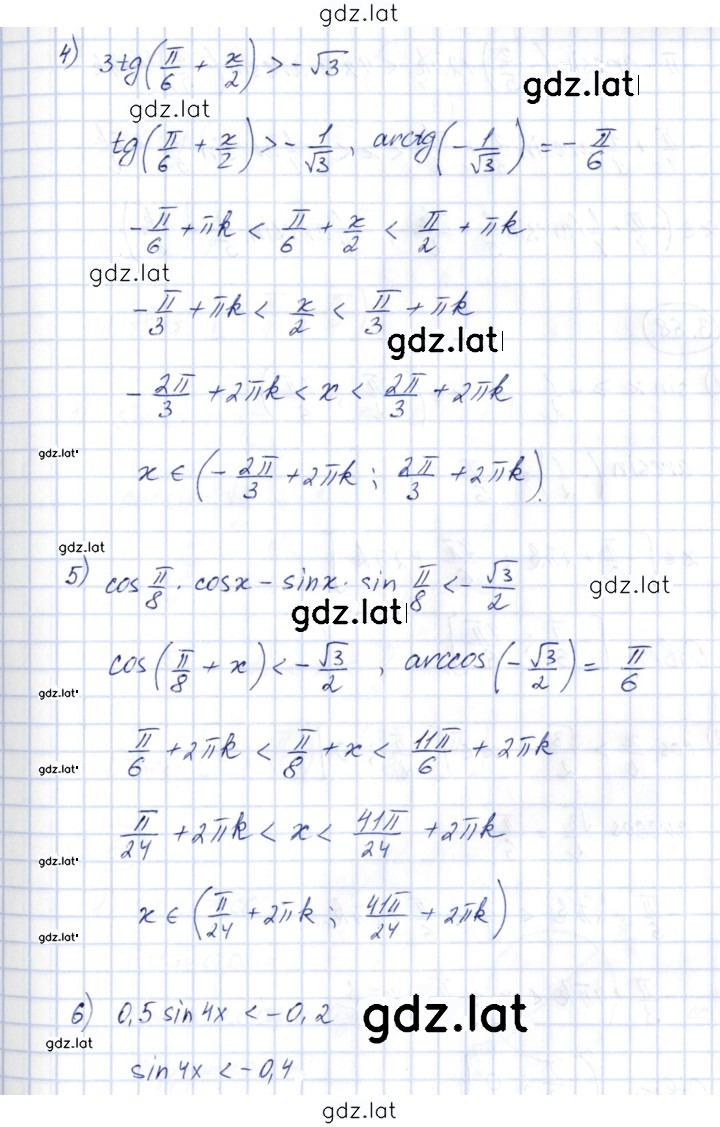 gdz.lat
4) 3tg(π/6 + x/2) > -√3
gdz.lat
gdz.lat
tg(π/6 + x/2) > -1/√3, arctg(-1/√3) = -π/6
-π/6 + πk < π/6 + x/2 < π/2 + πk
gdz.lat
-π/3 + πk < x/2 < π/3 + πk
gdz.lat
-2π/3 + 2πk < x < 2π/3 + 2πk
gdz.lat
x ∈ (-2π/3 + 2πk ; 2π/3 + 2πk).
gdz.lat
5) cos π/8 · cosx - sinx · sin π/8 < -√3/2
gdz.lat
gdz.lat
cos(π/8 + x) < -√3/2, arccos(-√3/2) = π/6
gdz.lat
π/6 + 2πk < π/8 + x < 11π/6 + 2πk
gdz.lat
π/24 + 2πk < x < 41π/24 + 2πk
gdz.lat
x ∈ (π/24 + 2πk ; 41π/24 + 2πk)
gdz.lat
6) 0,5 sin4x < -0,2
gdz.lat
gdz.lat
sin4x < -0,4
gdz.lat